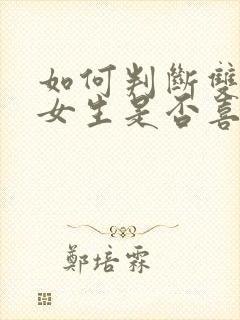 如何判斷雙
女生是否喜
鄭培霖